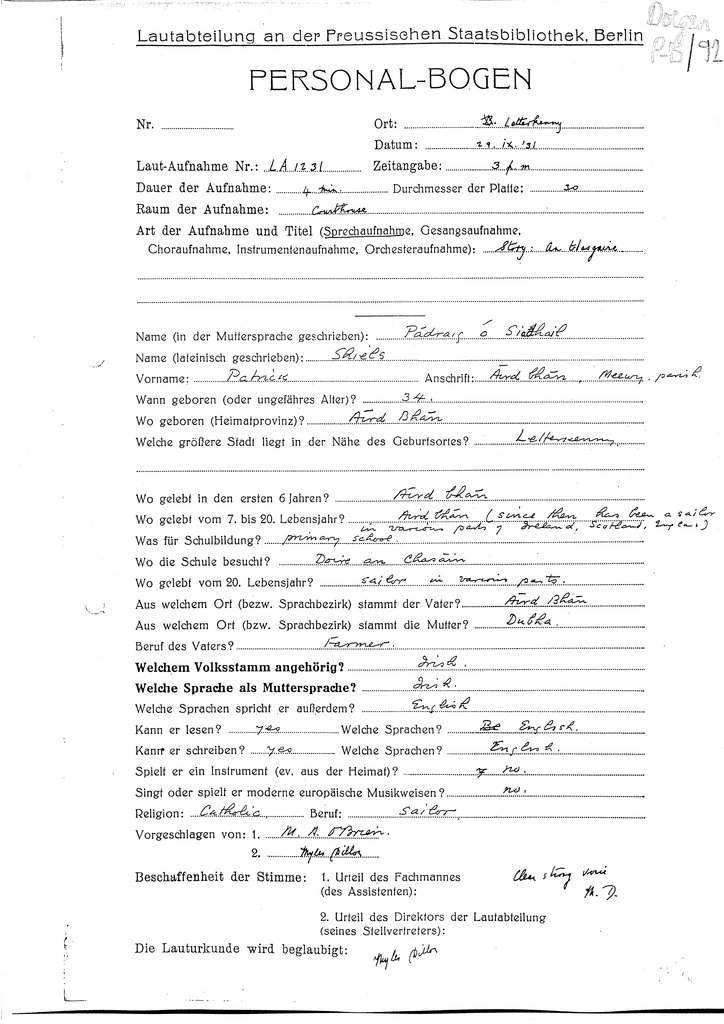 Lautabteilung an der Preussischen Staatsbibliothek, Berlin
PERSONAL-BOGEN
Nr.
Ort: Letterkenny
Datum: 29. ix. '31
Laut-Aufnahme Nr.: LA 1231 Zeitangabe: 3 p.m
Dauer der Aufnahme: 4 min. Durchmesser der Platte: 30
Raum der Aufnahme: Courthouse
Art der Aufnahme und Titel (Sprechaufnahme, Gesangsaufnahme,
Choraufnahme, Instrumentenaufnahme, Orchesteraufnahme): Story: An
Name (in der Muttersprache geschrieben): Pádraig ó Siathail
Name (lateinisch geschrieben): Shiels
Vorname: Patrick Anschrift: Árd bhán, parish.
Wann geboren (oder ungefähres Alter)? 34.
Wo geboren (Heimatprovinz)? Árd Bhán
Welche größere Stadt liegt in der Nähe des Geburtsortes? Letterkenny
Wo gelebt in den ersten 6 Jahren? Árd bhán
Wo gelebt vom 7. bis 20. Lebensjahr? Árd bhán (since then has been a sailor
in various parts of Ireland, Scotland, England)
Was für Schulbildung? primary school.
Wo die Schule besucht? Doire an Chasáin
Wo gelebt vom 20. Lebensjahr? sailor in various parts.
Aus welchem Ort (bezw. Sprachbezirk) stammt der Vater? Árd Bhán
Aus welchem Ort (bzw. Sprachbezirk) stammt die Mutter? Dubha.
Beruf des Vaters? Farmer.
Welchem Volksstamm angehörig? Irish.
Welche Sprache als Muttersprache? Irish.
Welche Sprachen spricht er außerdem? English
Kann er lesen? yes Welche Sprachen? English.
Kann er schreiben? yes Welche Sprachen? English.
Spielt er ein Instrument (ev. aus der Heimat)? no.
Singt oder spielt er moderne europäische Musikweisen? no.
Religion: Catholic, Beruf: sailor
Vorgeschlagen von: 1. M. A. O'Brien.
2. Myles Dillon
Beschaffenheit der Stimme: 1. Urteil des Fachmannes Clear strong voice
(des Assistenten): M. D.
2. Urteil des Direktors der Lautabteilung
(seines Stellvertreters):
Die Lauturkunde wird beglaubigt: Myles Dillon